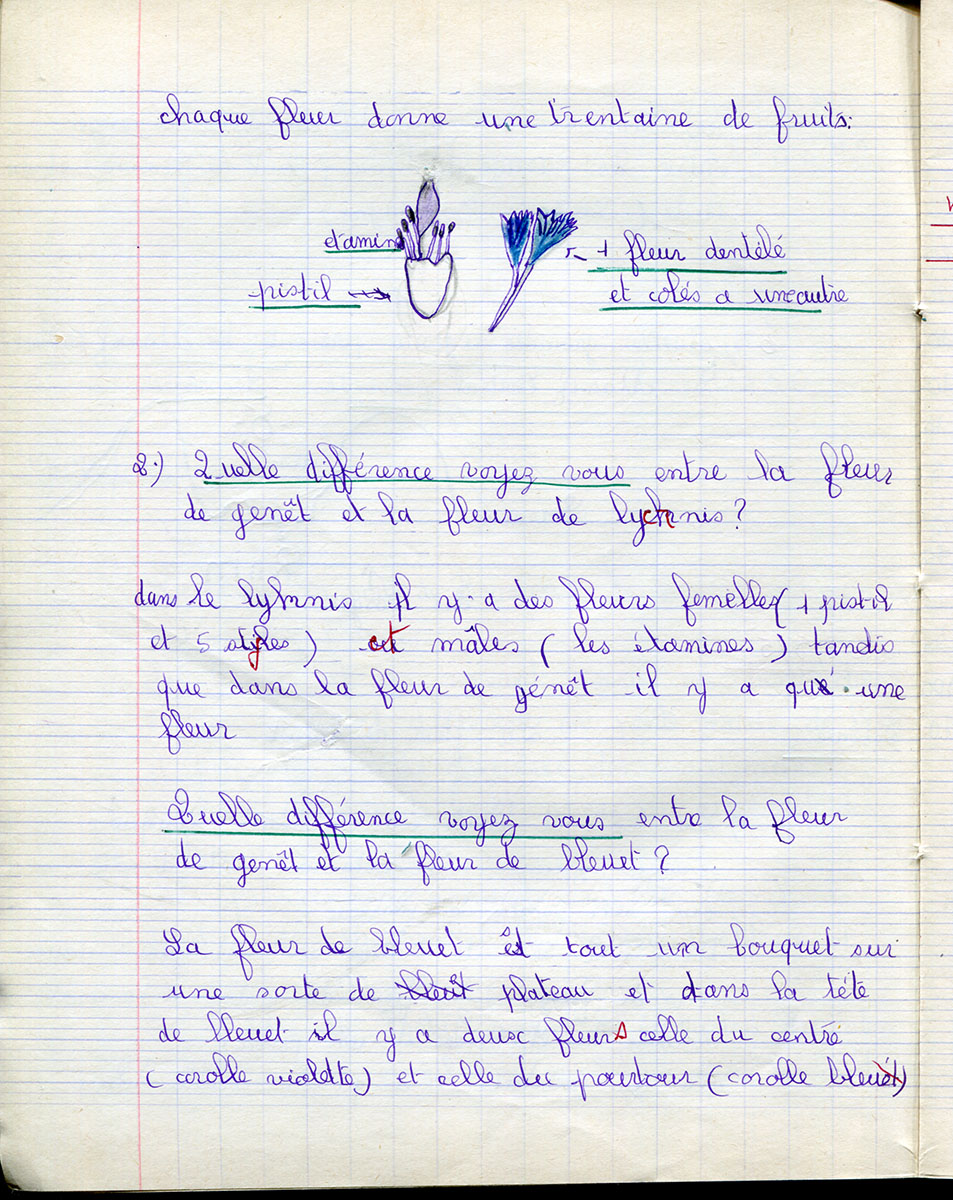 chaque fleur donne une trentaine de fruits.
étamin
pistil
+ fleur dentélé
et colés a uneautre
2.) Quelle différence voyez vous entre la fleur
de genêt et la fleur de lychnis ?
dans le lyhnnis il y a des fleurs femelles ( 1 pistil
et 5 styles ) et mâles ( les étamines ) tandis
que dans la fleur de génêt il y a que une
fleur
Quelle différence voyez vous entre la fleur
de genêt et la fleur de bleuet ?
La fleur de bleuet êt tout un bouquet sur
une sorte de bleuêt plateau et dans la téte
de bleuet il y a deusc fleurs celle du centre
( corolle violette ) et celle du pourtour ( corolle bleuét )